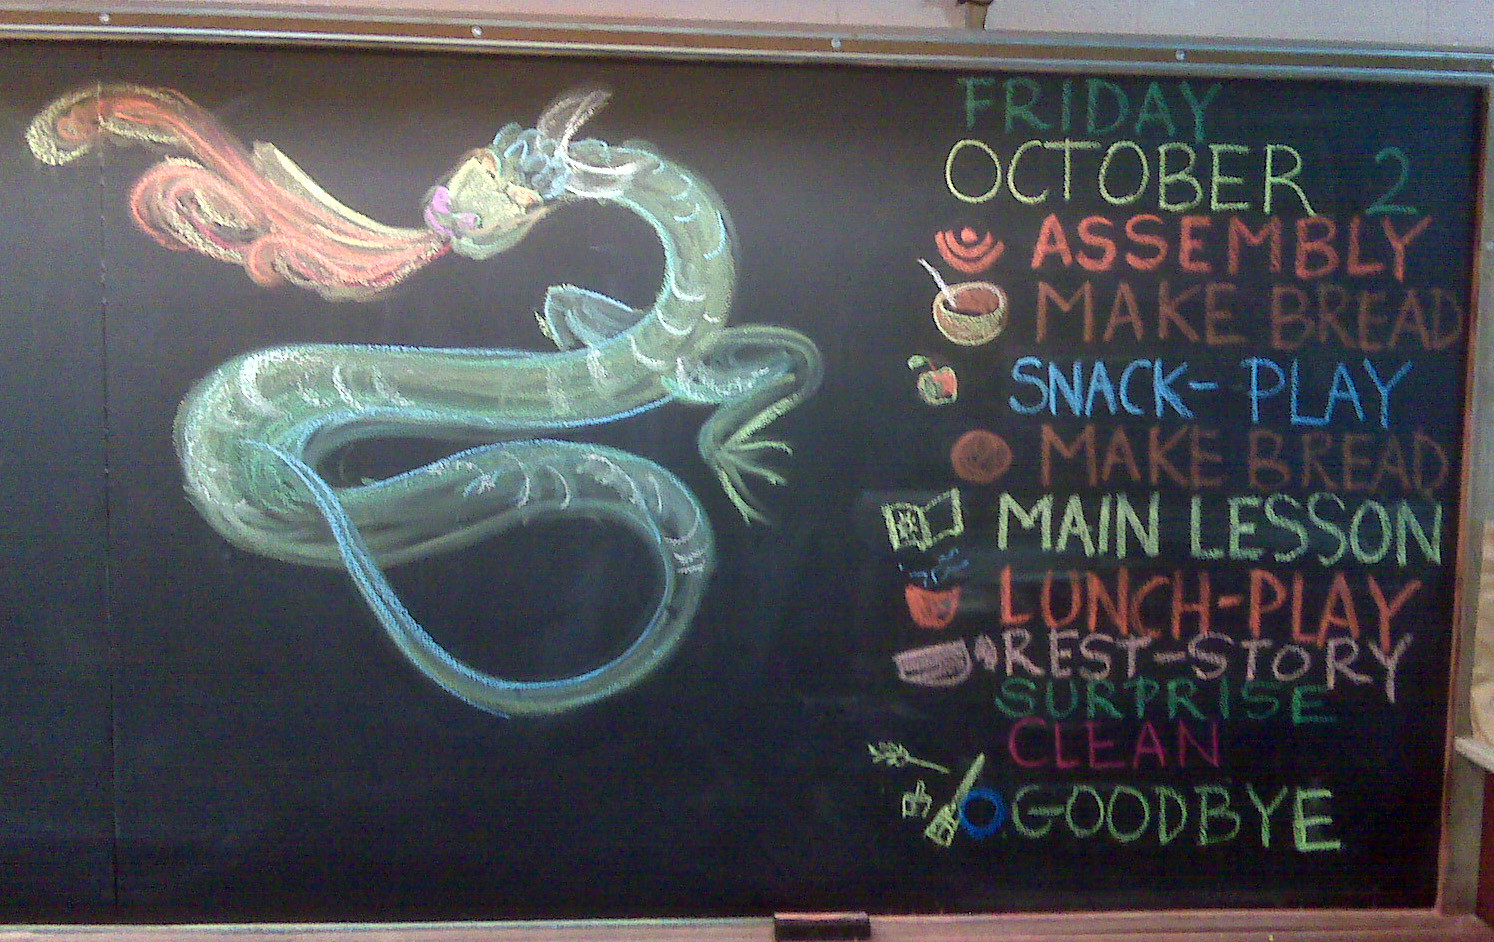 FRIDAY
OCTOBER 2
ASSEMBLY
MAKE BREAD
SNACK- PLAY
MAKE BREAD
MAIN LESSON
LUNCH-PLAY
REST-STORY
SURPRISE
CLEAN
GOODBYE